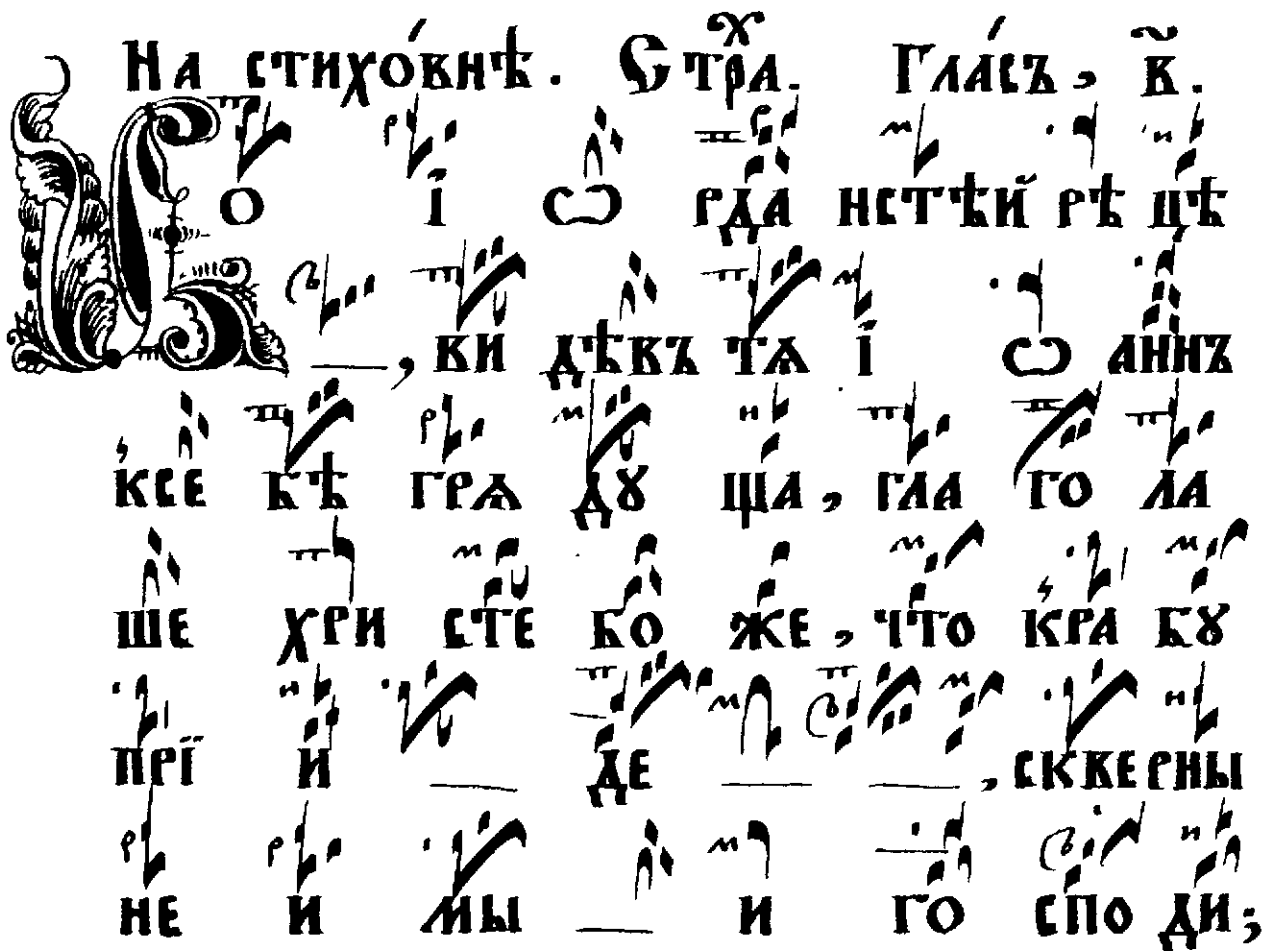 На стихо́внѣ. Стрⷯа. Гла́съ, в҃.
Во і ѡ рда нстѣй рѣ цѣ
, ви дѣвъ тѧ і ѡ аннъ
ксе бѣ грѧ дꙋ ща, гла го ла
ше хри сте бо же, что кра бꙋ
прї и де, скверны
не и мы и го спо ди;